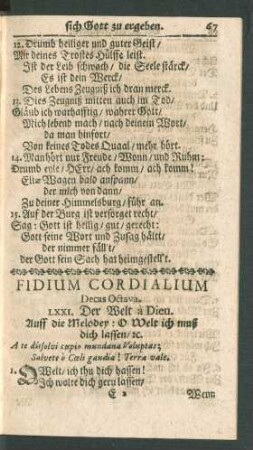 sich Gott zu ergeben. 67
12. Drumb heiliger und guter Geist/
Mit deines Trostes Hülffe leist.
Ist der Leib schwach/ die Seele stärck/
Es ist dein Werck/
Des Lebens Zeugniß ich dran merck.
13. Dies Zeugniß mitten auch im Tod/
Gläub ich warhafftig/ wahrer Gott/
Mich lebend mach/ nach deinem Wort/
da man hinfort/
Von keines Todes Quaal/ mehr hört.
14. Man hört nur Freude/ Wonn/ und Ruhm:
Drumb eyle/ HErr/ ach komm/ ach komm!
Eliæ Wagen bald anspann/
der mich von dann/
Zu deiner Himmelsburg/ führ an.
15. Auf der Burg ist versorget recht/
Sag: Gott ist heilig/ gut/ gerecht:
Gott seine Wort und Zusag hält/
der nimmer fäll't/
der Gott sein Sach hat heimgestell't.
FIDIUM CORDIALIUM
Decas Octava.
LXXI. Der Welt à Dieu.
Auff die Melodey: O Welt ich muß
dich lassen/ ꝛc.
A te dissolvi cupio mundana Voluptas;
Salvete ô Cœli gaudia! Terra vale.
1. O Welt/ ich thu dich hassen!
Ich wolte dich gern lassen/
E 2 Wenn